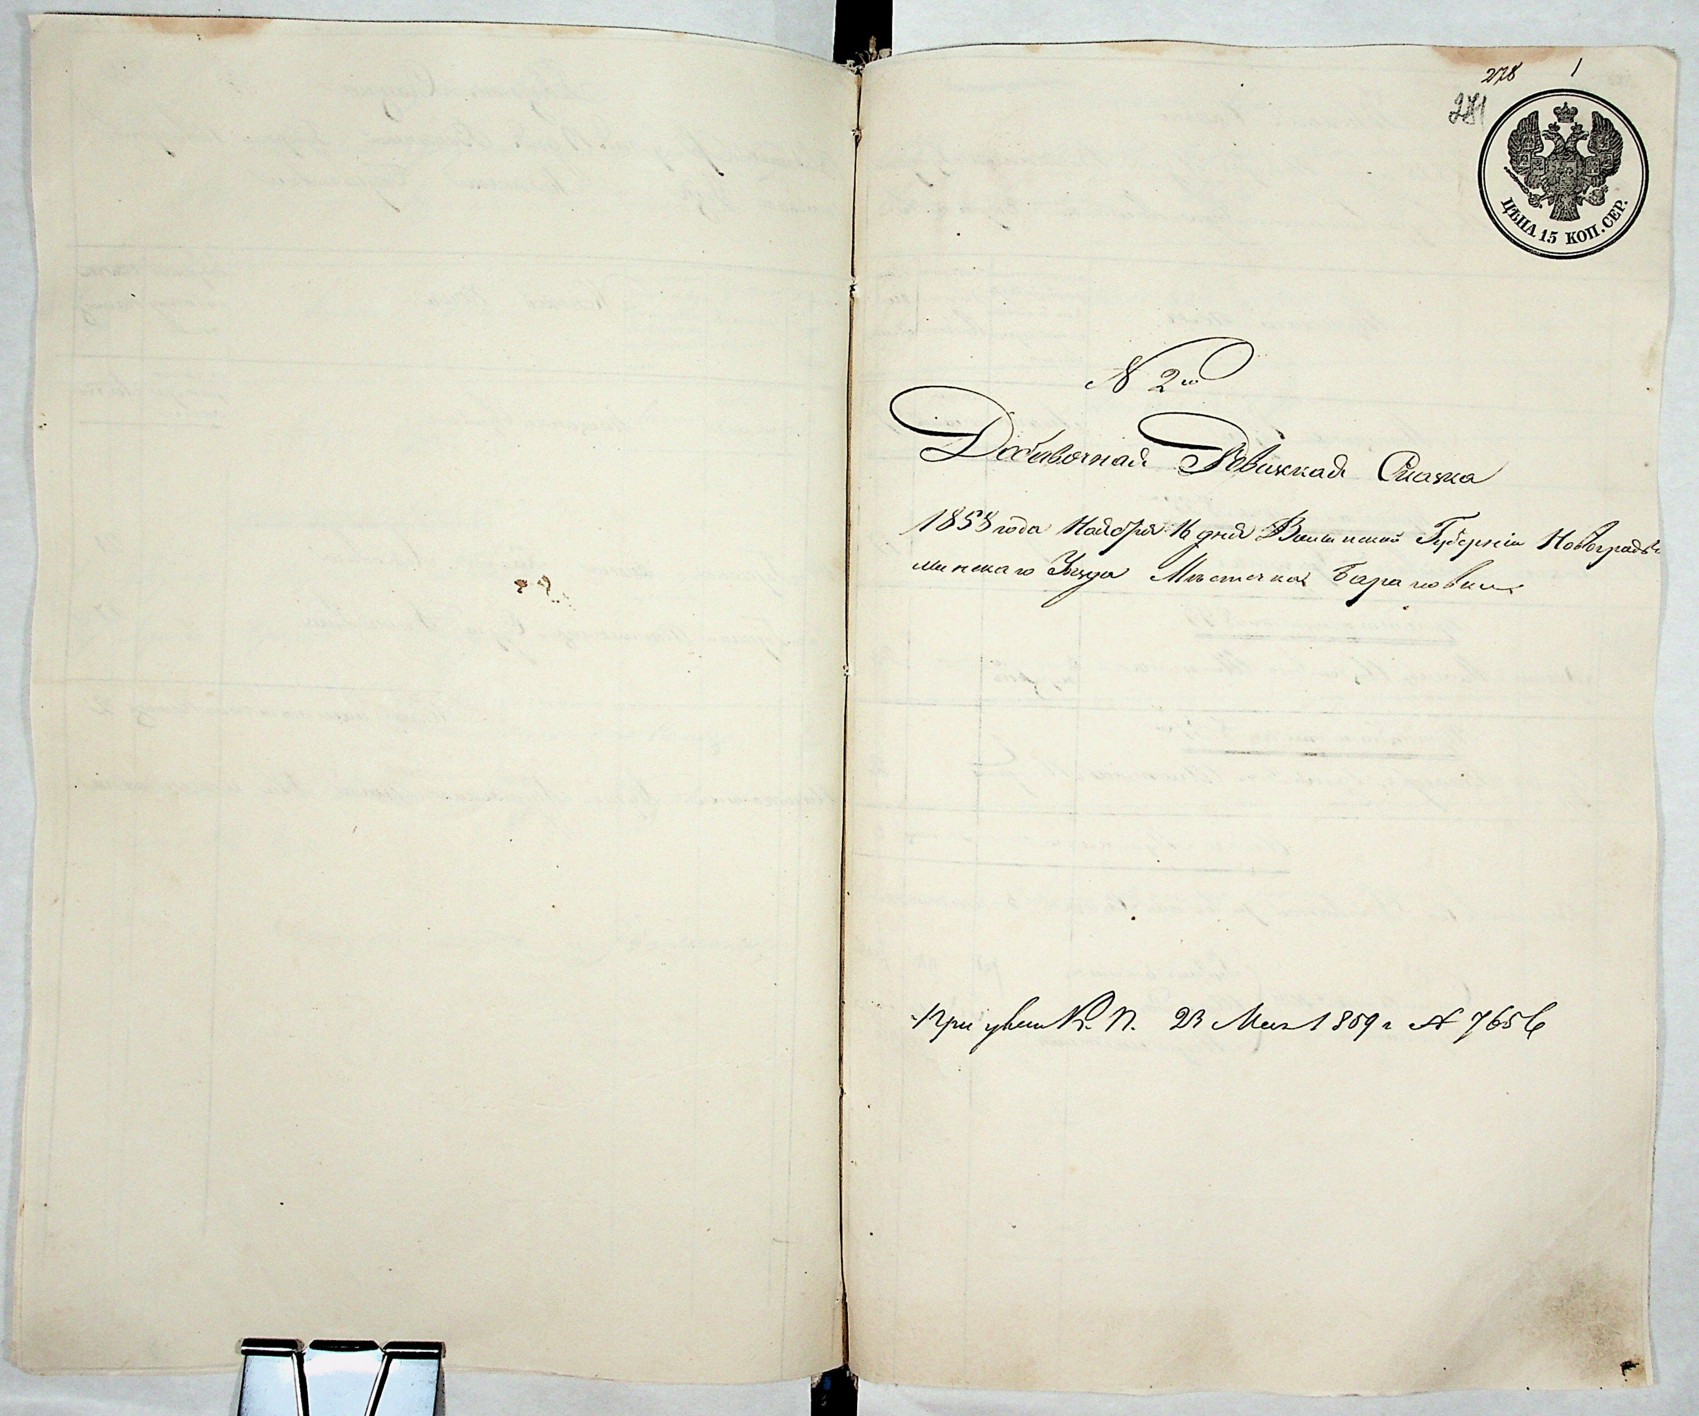 278 1
281
ЦѢНА 15 КОП. СЕР.
N 2й
Добавочная Ревизкая Сказка
1858 года Ноября 16 дня Волынской Губерніи Новоградъ
линскаго Уѣзда Мѣстечка Барановки
При увѣд К. П. 23 Мая 1859 г N 7656